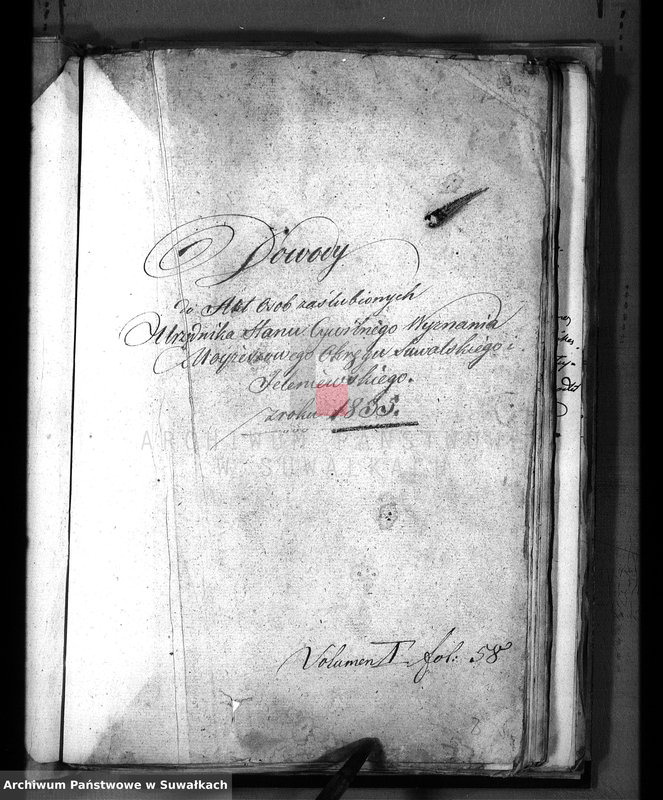 Dowody
do Akt Osób zaślubionych
Urzędnika Stanu Cywilnego Wyznania
Moyżeszowego Okręgu Suwalskiego i
Jeleniewskiego.
z roku 1835.
ARCHIWUM PAŃSTWOWE
W SUWAŁKACH
Volumen I fol: 58
Archiwum Państwowe w Suwałkach